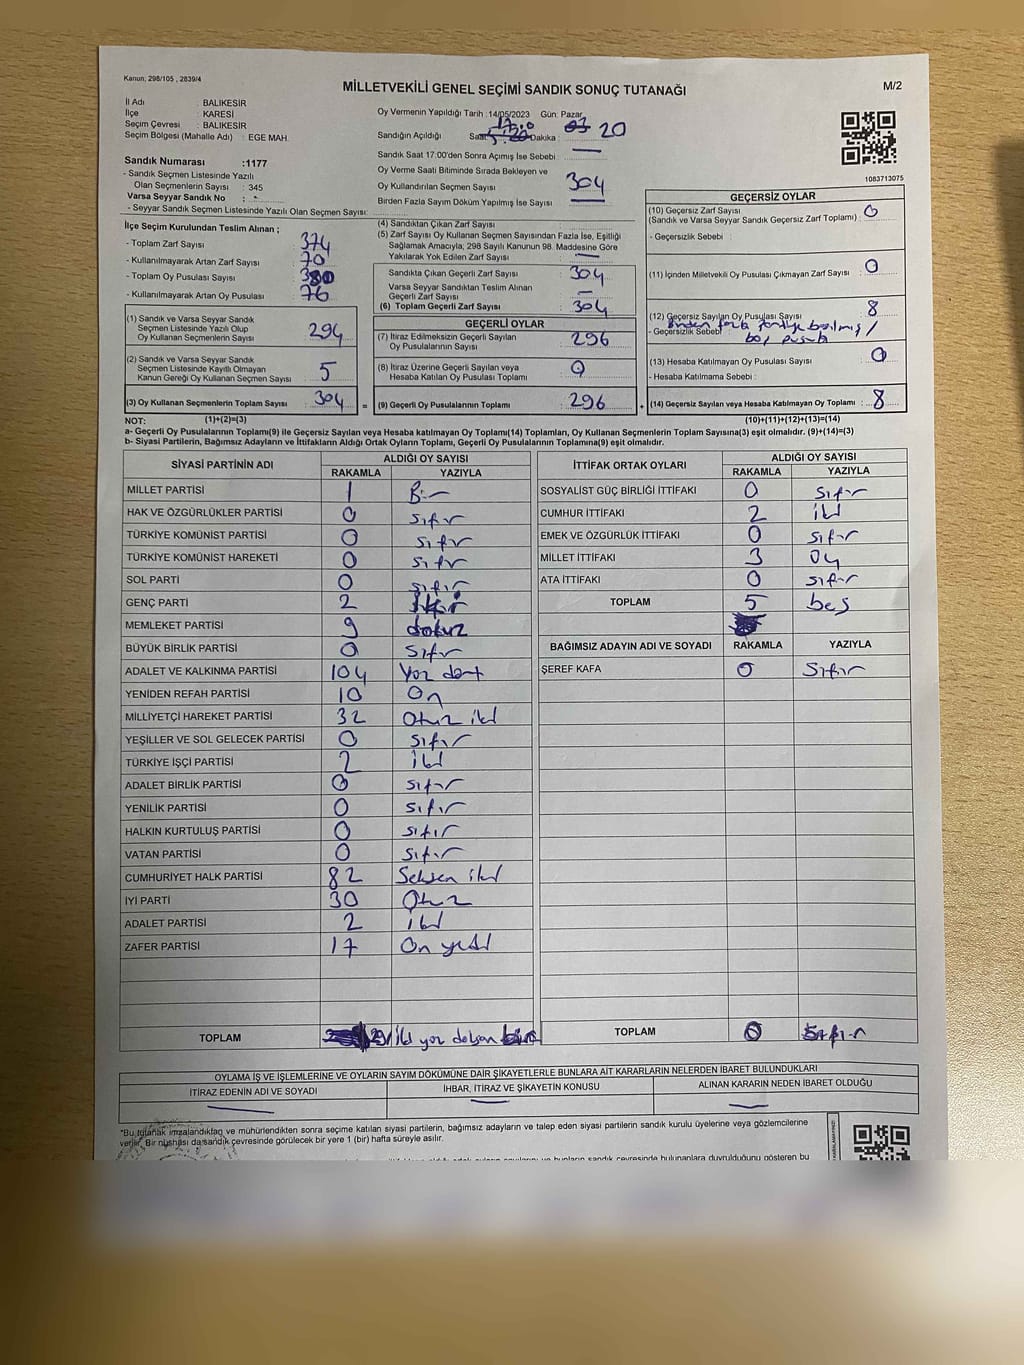 Kanun, 298/105 , 2839/4
MİLLETVEKİLİ GENEL SEÇİMİ SANDIK SONUÇ TUTANAĞI
M/2
İl Adı : BALIKESİR
İlçe : KARESİ
Seçim Çevresi : BALIKESİR
Seçim Bölgesi (Mahalle Adı) : EGE MAH.
Sandık Numarası :1177
- Sandık Seçmen Listesinde Yazılı
Olan Seçmenlerin Sayısı : 345
Varsa Seyyar Sandık No : -
- Seyyar Sandık Seçmen Listesinde Yazılı Olan Seçmen Sayısı :
Oy Vermenin Yapıldığı Tarih :14/05/2023 Gün: Pazar
Sandığın Açıldığı Saat Dakika : 20
Sandık Saat 17:00'den Sonra Açımış İse Sebebi —
Oy Verme Saati Bitiminde Sırada Bekleyen ve
Oy Kullandırılan Seçmen Sayısı 304
Birden Fazla Sayım Döküm Yapılmış İse Sayısı —
1083713075
İlçe Seçim Kurulundan Teslim Alınan ;
- Toplam Zarf Sayısı : 374
- Kullanılmayarak Artan Zarf Sayısı : 70
- Toplam Oy Pusulası Sayısı : 380
- Kullanılmayarak Artan Oy Pusulası : 76
(1) Sandık ve Varsa Seyyar Sandık
Seçmen Listesinde Yazılı Olup
Oy Kullanan Seçmenlerin Sayısı : 294
(2) Sandık ve Varsa Seyyar Sandık
Seçmen Listesinde Kayıtlı Olmayan
Kanun Gereği Oy Kullanan Seçmen Sayısı : 5
(3) Oy Kullanan Seçmenlerin Toplam Sayısı : 304 =
(4) Sandıktan Çıkan Zarf Sayısı :
(5) Zarf Sayısı Oy Kullanan Seçmen Sayısından Fazla İse, Eşitliği
Sağlamak Amacıyla; 298 Sayılı Kanunun 98. Maddesine Göre
Yakılarak Yok Edilen Zarf Sayısı : —
Sandıkta Çıkan Geçerli Zarf Sayısı : 304
Varsa Seyyar Sandıktan Teslim Alınan
Geçerli Zarf Sayısı : —
(6) Toplam Geçerli Zarf Sayısı : 304
GEÇERLİ OYLAR
(7) İtiraz Edilmeksizin Geçerli Sayılan
Oy Pusulalarının Sayısı : 296
(8) İtiraz Üzerine Geçerli Sayılan veya
Hesaba Katılan Oy Pusulası Toplamı : 0
(9) Geçerli Oy Pusulalarının Toplamı : 296 +
GEÇERSİZ OYLAR
(10) Geçersiz Zarf Sayısı : 0
(Sandık ve Varsa Seyyar Sandık Geçersiz Zarf Toplamı)
- Geçersizlik Sebebi :
(11) İçinden Milletvekili Oy Pusulası Çıkmayan Zarf Sayısı : 0
(12) Geçersiz Sayılan Oy Pusulası Sayısı : 8
- Geçersizlik Sebebi : Birden fazla partiye basılmış /
boş pusula
(13) Hesaba Katılmayan Oy Pusulası Sayısı : 0
- Hesaba Katılmama Sebebi :
(14) Geçersiz Sayılan veya Hesaba Katılmayan Oy Toplamı : 8
NOT: (1)+(2)=(3) (10)+(11)+(12)+(13)=(14)
a- Geçerli Oy Pusulalarının Toplamı(9) ile Geçersiz Sayılan veya Hesaba katılmayan Oy Toplamı(14) Toplamları, Oy Kullanan Seçmenlerin Toplam Sayısına(3) eşit olmalıdır. (9)+(14)=(3)
b- Siyasi Partilerin, Bağımsız Adayların ve İttifakların Aldığı Ortak Oyların Toplamı, Geçerli Oy Pusulalarının Toplamına(9) eşit olmalıdır.
SİYASİ PARTİNİN ADI ALDIĞI OY SAYISI
RAKAMLA YAZIYLA
MİLLET PARTİSİ 1 Bir
HAK VE ÖZGÜRLÜKLER PARTİSİ 0 sıfır
TÜRKİYE KOMÜNİST PARTİSİ 0 sıfır
TÜRKİYE KOMÜNİST HAREKETİ 0 sıfır
SOL PARTİ 0 sıfır
GENÇ PARTİ 2
MEMLEKET PARTİSİ 9 dokuz
BÜYÜK BİRLİK PARTİSİ 0 sıfır
ADALET VE KALKINMA PARTİSİ 104 Yüz dört
YENİDEN REFAH PARTİSİ 10 On
MİLLİYETÇİ HAREKET PARTİSİ 32 Otuz iki
YEŞİLLER VE SOL GELECEK PARTİSİ 0 sıfır
TÜRKİYE İŞÇİ PARTİSİ 2 iki
ADALET BİRLİK PARTİSİ 0 sıfır
YENİLİK PARTİSİ 0 sıfır
HALKIN KURTULUŞ PARTİSİ 0 sıfır
VATAN PARTİSİ 0 sıfır
CUMHURİYET HALK PARTİSİ 82 Seksen iki
İYİ PARTİ 30 Otuz
ADALET PARTİSİ 2 iki
ZAFER PARTİSİ 17 On yedi
TOPLAM 291 iki yüz doksan
İTTİFAK ORTAK OYLARI ALDIĞI OY SAYISI
RAKAMLA YAZIYLA
SOSYALİST GÜÇ BİRLİĞİ İTTİFAKI 0 sıfır
CUMHUR İTTİFAKI 2 iki
EMEK VE ÖZGÜRLÜK İTTİFAKI 0 sıfır
MİLLET İTTİFAKI 3 üç
ATA İTTİFAKI 0 sıfır
TOPLAM 5 beş
BAĞIMSIZ ADAYIN ADI VE SOYADI RAKAMLA YAZIYLA
ŞEREF KAFA 0 Sıfır
TOPLAM 0 sıfır
OYLAMA İŞ VE İŞLEMLERİNE VE OYLARIN SAYIM DÖKÜMÜNE DAİR ŞİKAYETLERLE BUNLARA AİT KARARLARIN NELERDEN İBARET BULUNDUKLARI
İTİRAZ EDENİN ADI VE SOYADI İHBAR, İTİRAZ VE ŞİKAYETİN KONUSU ALINAN KARARIN NEDEN İBARET OLDUĞU
— — —
"Bu tutanak imzalandıktan ve mühürlendikten sonra seçime katılan siyasi partilerin, bağımsız adayların ve talep eden siyasi partilerin sandık kurulu üyelerine veya gözlemcilerine
verilir. Bir nüshası da sandık çevresinde görülecek bir yere 1 (bir) hafta süreyle asılır.